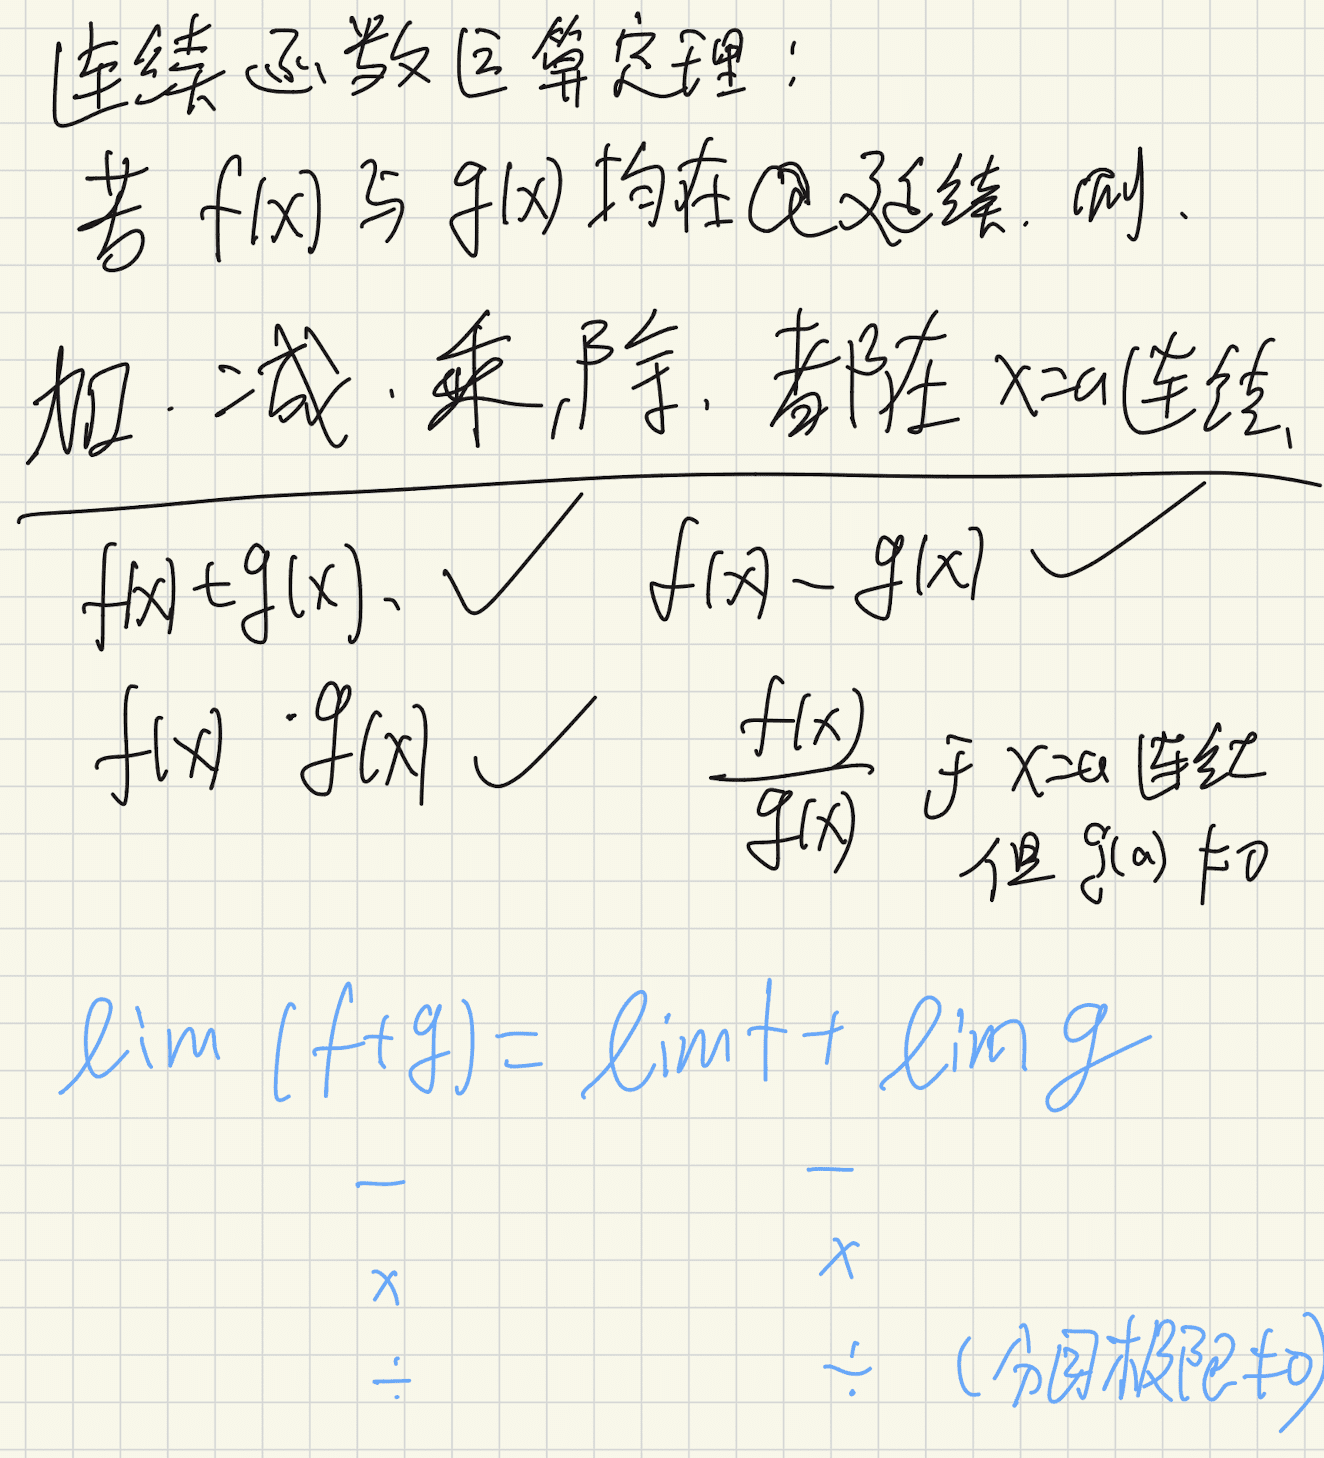 连续函数运算定理:
若 f(x) 与 g(x) 均在 a 处连续. 则.
加. 减. 乘, 除. 都在 x=a 连续,
f(x)+g(x)、 ✓ f(x) - g(x) ✓
f(x) · g(x) ✓ f(x)/g(x) 于 x=a 连续
但 g(a) ≠0
lim (f+g) = lim f + lim g
− −
x x
÷ ÷ (分母极限≠0)